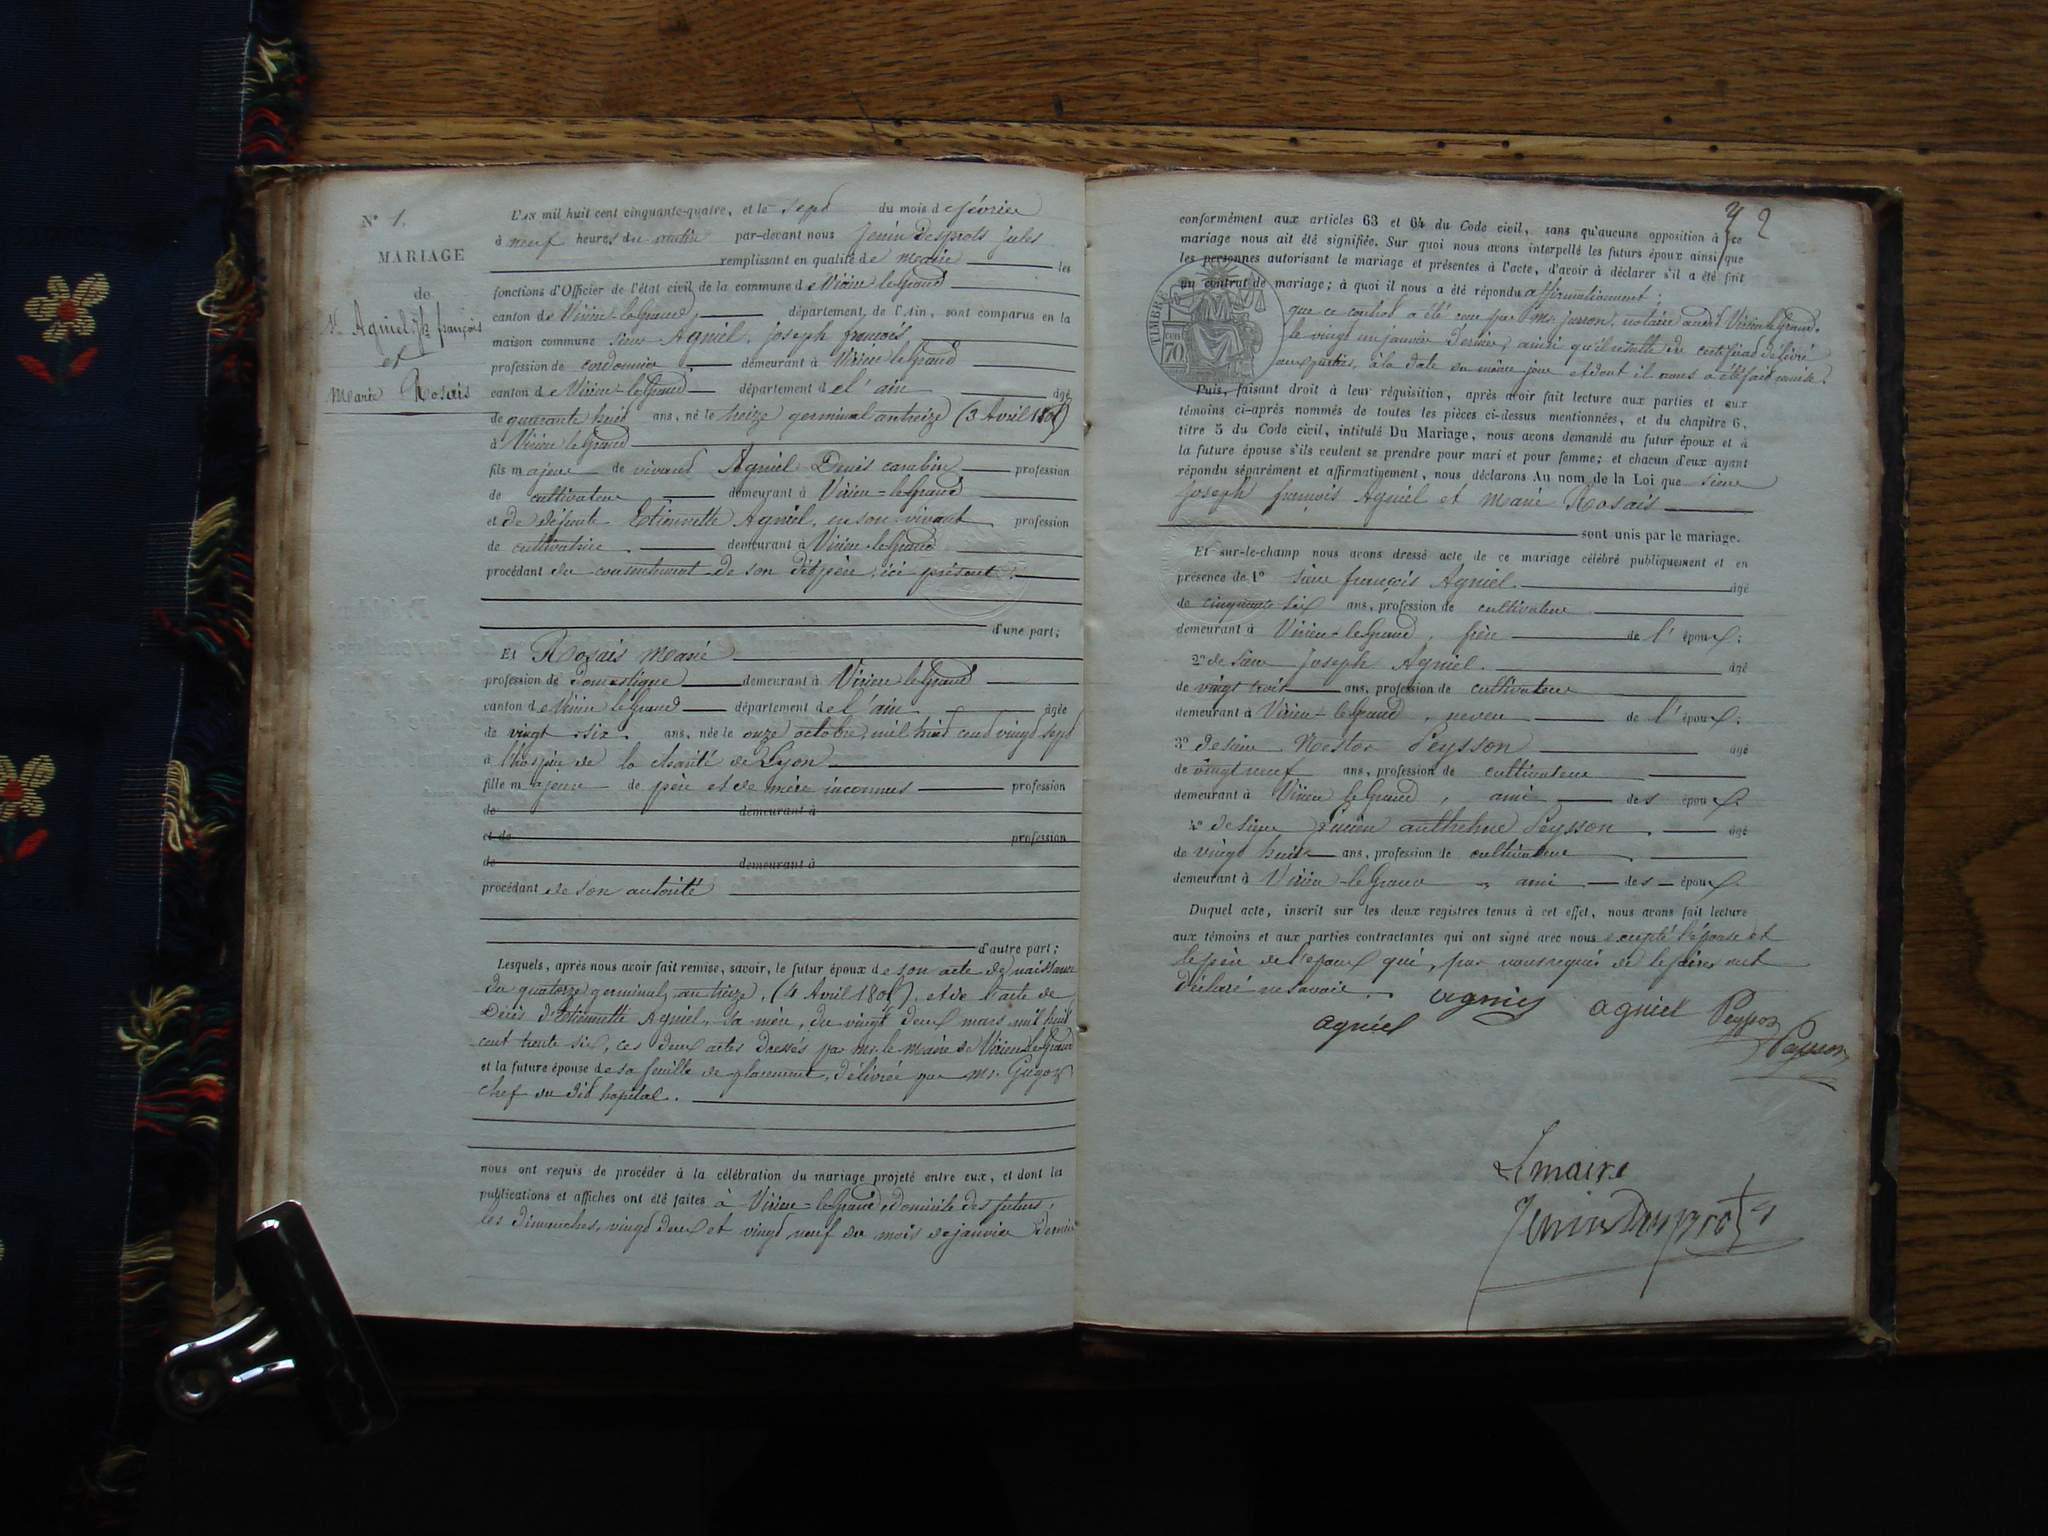 N° 1.
MARIAGE
de
Agniel Jh françois
et
Marie Rosais
L'AN mil huit cent cinquante-quatre, et le sept du mois de février
à neuf heures du matin par-devant nous Jenin Desprots Jules
remplissant en qualité de Maire les
fonctions d'Officier de l'état civil de la commune de Virieu le Grand
canton de Virieu-le Grand, département, de l'Ain, sont comparus en la
maison commune sieur Agniel, Joseph françois
profession de cordonnier demeurant à Virieu le Grand
canton de Virieu-le Grand département de l'ain âgé
de quarante huit ans, né le treize germinal an treize (3 Avril 1805)
à Virieu le Grand
fils majeur de vivant Agniel Denis carabin profession
de cultivateur demeurant à Virieu-le Grand
et de défunte Etiennette Agniel, en son vivant profession
de cultivatrice demeurant à Virieu-le Grand
procédant du consentement de son dit père ici présent.
d'une part;
Et Rosais Marie
profession de domestique demeurant à Virieu le Grand
canton de Virieu le Grand département de l'ain âgée
de vingt six ans, née le onze octobre mil huit cent vingt sept
à l'hospice de la charité de Lyon
fille majeure de père et de mère inconnus profession
de demeurant à
et de profession
de demeurant à
procédant de son autorité
d'autre part;
Lesquels, après nous avoir fait remise, savoir, le futur époux de son acte de naissance
du quatorze germinal, an treize, (4 Avril 1805), et de l'acte de
Décès d'Etiennette Agniel, sa mère, du vingt deux mars mil huit
cent trente six, ces deux actes dressés par Mr. le Maire de Virieu le Grand
et la future épouse de sa feuille de placement, délivrée par Mr.
chef du dit hopital.
nous ont requis de procéder à la célébration du mariage projeté entre eux, et dont les
publications et affiches ont été faites à Virieu-le Grand, domicile des futurs,
les dimanches, vingt deux et vingt neuf du mois de janvier dernier
2
conformément aux articles 63 et 64 du Code civil, sans qu'aucune opposition à ce
mariage nous ait été signifiée. Sur quoi nous avons interpellé les futurs époux ainsi que
les personnes autorisant le mariage et présentes à l'acte, d'avoir à déclarer s'il a été fait
un contrat de mariage; à quoi il nous a été répondu affirmativement;
TIMBRE
70
que ce contrat a été reçu par Mr. notaire audit Virieu le Grand.
le vingt un janvier dernier, ainsi qu'il résulte du certificat délivré
aux parties, à la date du même jour et dont il nous a été fait remise.
Puis, faisant droit à leur réquisition, après avoir fait lecture aux parties et aux
témoins ci-après nommés de toutes les pièces ci-dessus mentionnées, et du chapitre 6,
titre 5 du Code civil, intitulé Du Mariage, nous avons demandé au futur époux et à
la future épouse s'ils veulent se prendre pour mari et pour femme; et chacun d'eux ayant
répondu séparément et affirmativement, nous déclarons Au nom de la Loi que sieur
Joseph françois Agniel et Marie Rosais
sont unis par le mariage.
Et sur-le-champ nous avons dressé acte de ce mariage célébré publiquement et en
présence de 1° sieur françois Agniel âgé
de cinquante six ans, profession de cultivateur
demeurant à Virieu-le Grand, frère de l'époux;
2° de sieur Joseph Agniel. âgé
de vingt trois ans, profession de cultivateur
demeurant à Virieu-le Grand, neveu de l'époux;
3° de sieur Nestor Peysson âgé
de vingt neuf ans, profession de cultivateur
demeurant à Virieu le Grand, ami des époux.
4° de sieur Lucien anthelme Peysson âgé
de vingt huit ans, profession de cultivateur
demeurant à Virieu-le Grand, ami des époux.
Duquel acte, inscrit sur les deux registres tenus à cet effet, nous avons fait lecture
aux témoins et aux parties contractantes qui ont signé avec nous excepté l'épouse et
le père de l'époux qui, par nous requis de le faire ont
déclaré ne savoir.
agniel agniel Peysson
agniel Peysson
Le maire
Jenin Desprots